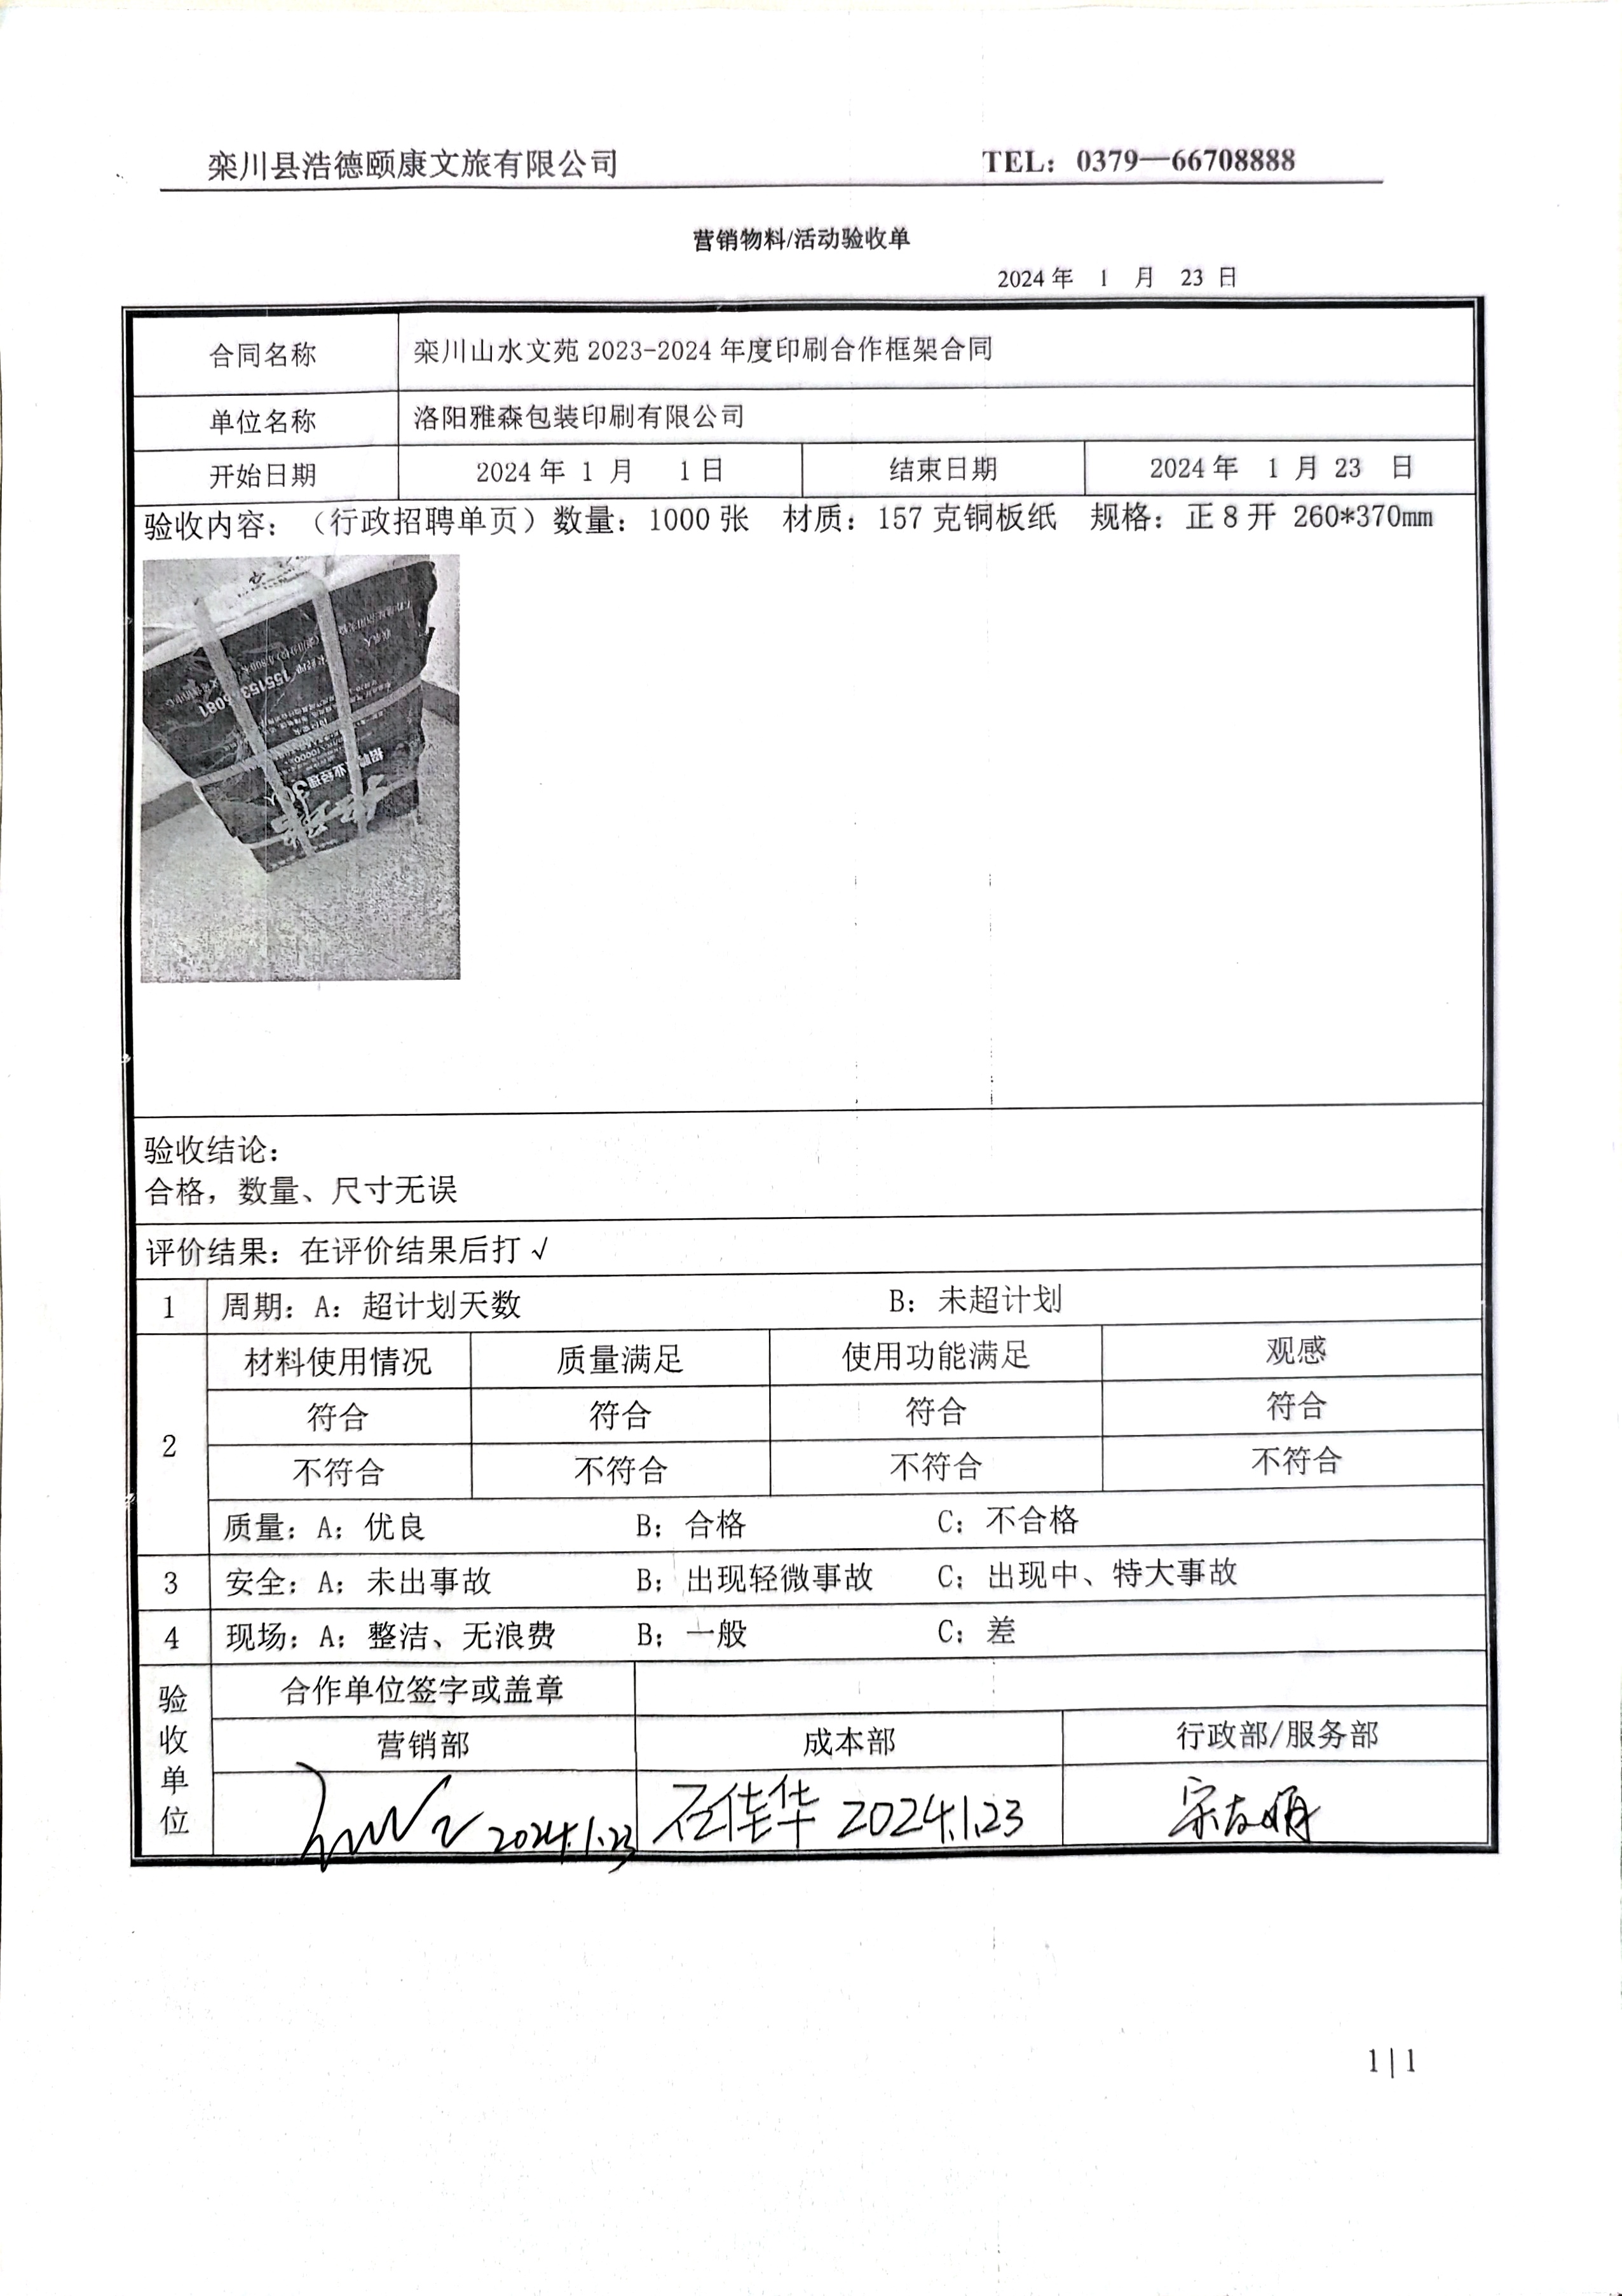 栾川县浩德颐康文旅有限公司 TEL：0379—66708888
营销物料/活动验收单
2024 年 1 月 23 日
合同名称 栾川山水文苑 2023-2024 年度印刷合作框架合同
单位名称 洛阳雅森包装印刷有限公司
开始日期 2024 年 1 月 1 日 结束日期 2024 年 1 月 23 日
验收内容：（行政招聘单页）数量：1000 张 材质：157 克铜板纸 规格：正 8 开 260*370mm
验收结论：
合格，数量、尺寸无误
评价结果：在评价结果后打 √
1 周期：A：超计划天数 B：未超计划
2 材料使用情况 质量满足 使用功能满足 观感
符合 符合 符合 符合
不符合 不符合 不符合 不符合
质量：A：优良 B：合格 C：不合格
3 安全：A：未出事故 B：出现轻微事故 C：出现中、特大事故
4 现场：A：整洁、无浪费 B：一般 C：差
验收单位 合作单位签字或盖章
营销部 成本部 行政部/服务部
2024.1.23 石佳华 2024.1.23
1|1